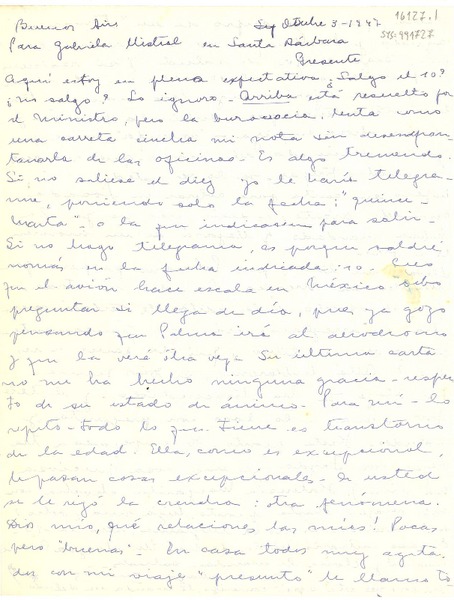 16127.1
sig. 991727
Buenos Aires Octubre 3-1947
Para Gabriela Mistral en Santa Bárbara
Presente
Aquí estoy en plena expectativa ¿Salgo el 10?
¿no salgo? Lo ignoro - Arriba está resuelto por
el Ministro, pero la burocracia, lenta como
una carreta cincha mi nota sin
de las oficinas - Es algo tremendo.
Si no saliese el diez yo le haría telegra-
ma, poniendo solo la fecha: "quince-
Marta" - o la que indicasen para salir -
Si no hago telegrama, es porque saldré
nomás en la fecha indicada: 10 - Creo
que el avion hace escala en México debo
preguntar si llega de día, pues ya gozo
pensando que Palma irá al aeródromo
y que la veré otra vez. Su última carta
no me ha hecho ninguna gracia - respec
to de su estado de ánimo. Para mí - lo
repito - todo lo que tiene es transtorno
de la edad. Ella, como es excepcional,
le pasan cosas excepcionales - a usted
se le rizó la : otra fenómena.
Dios mío, qué relaciones las mías! Pocas
pero "buenas" - En casa todos muy agita-
dos con mi viaje "presunto" le llamo to